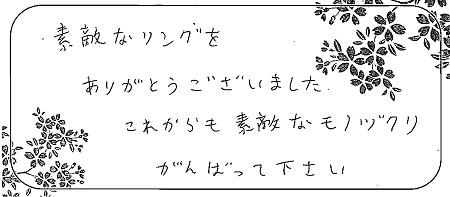 素敵なリングを
ありがとうございました.
これからも素敵なモノヅクリ
がんばって下さい